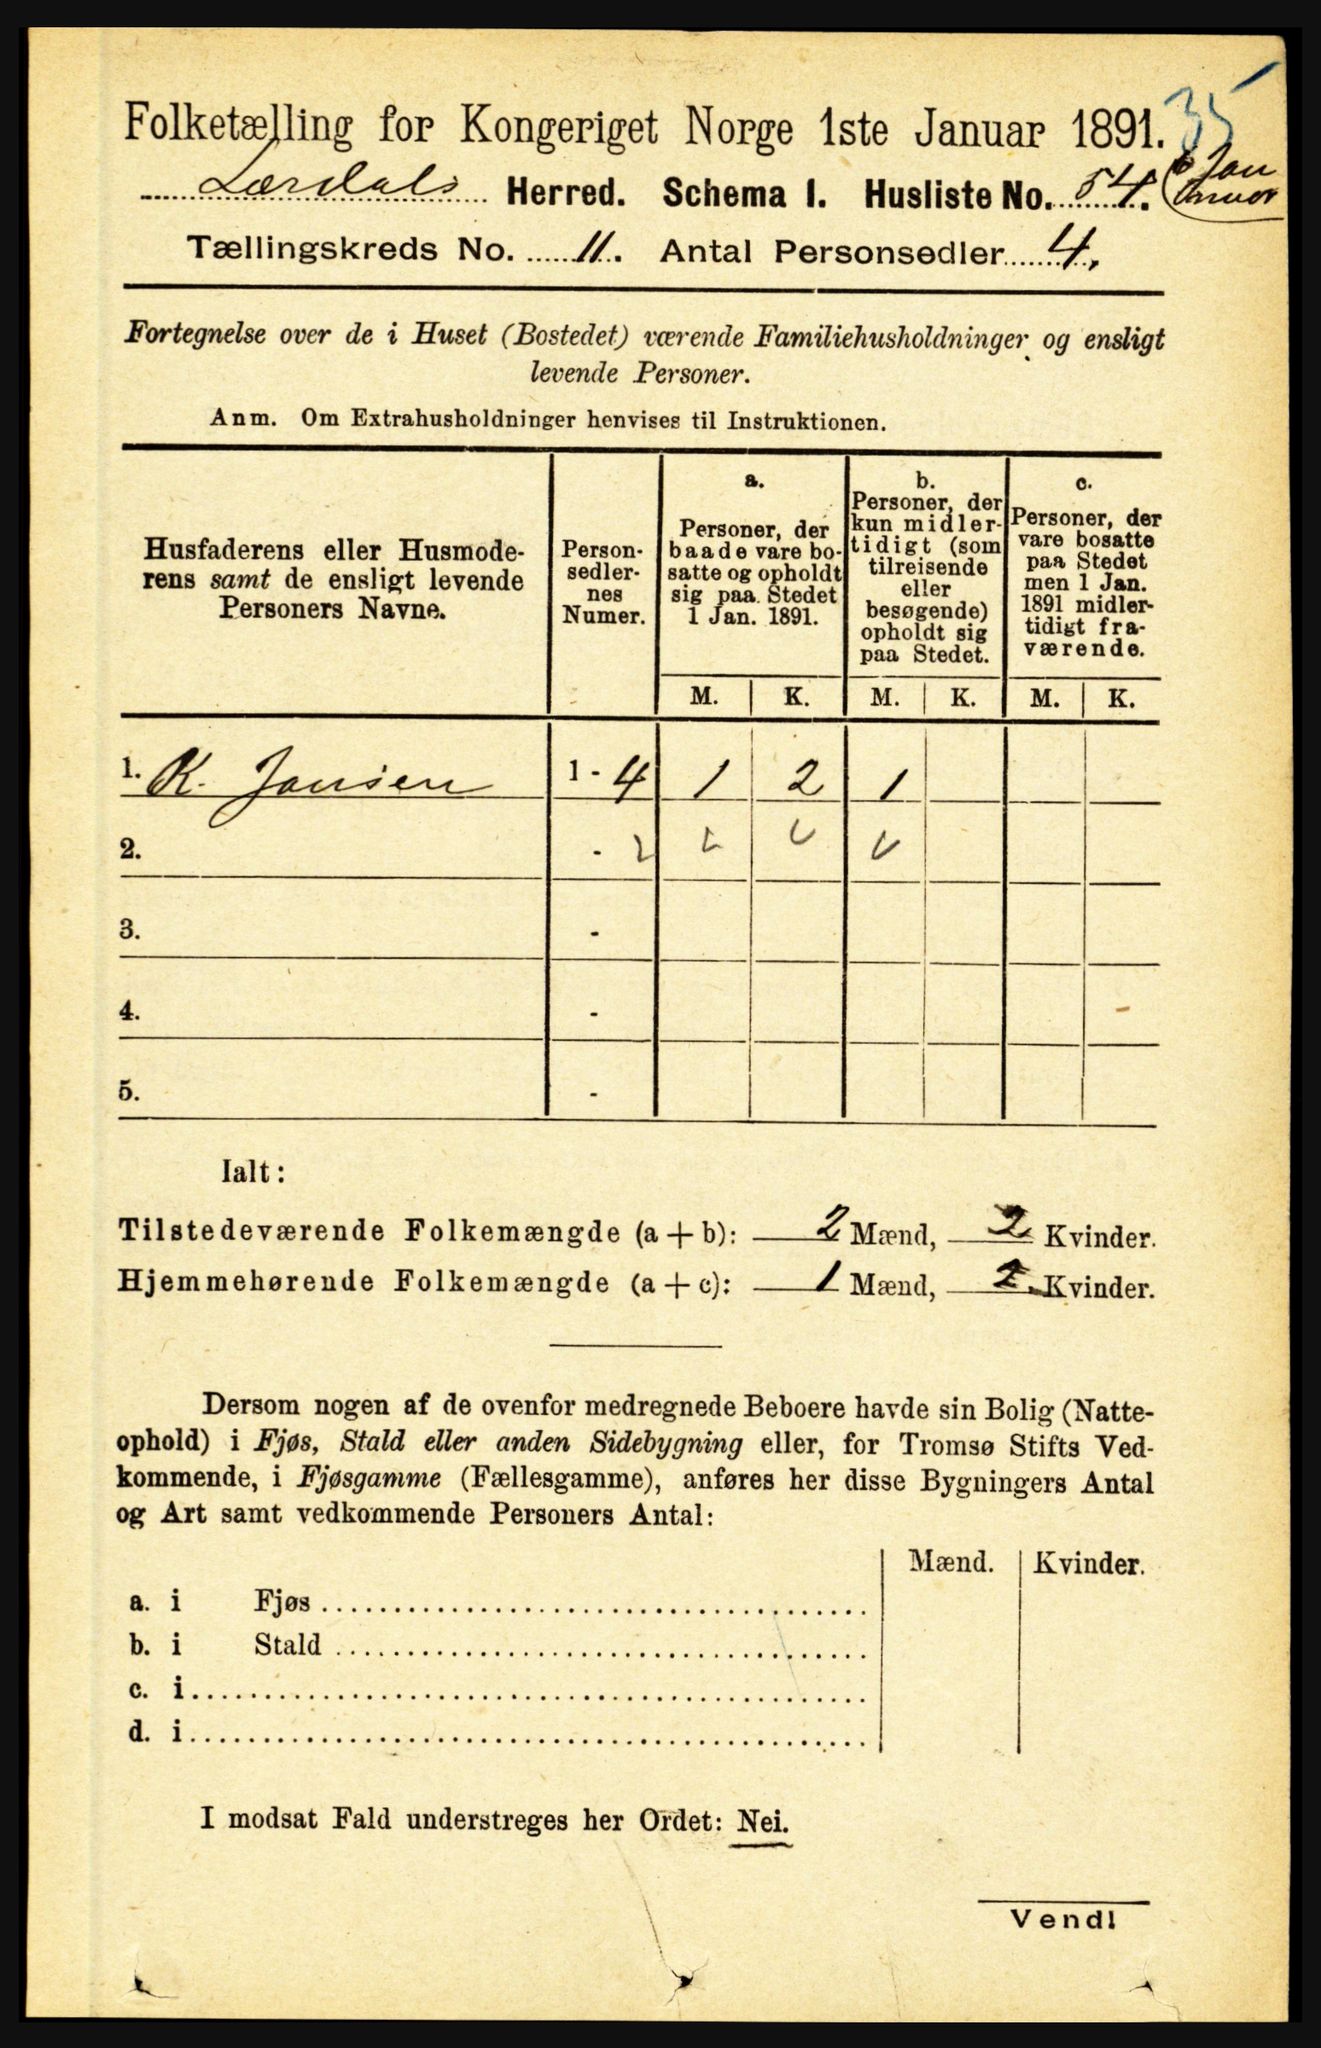 Folketælling for Kongeriget Norge 1ste Januar 1891. 35
Lærdals Herred. Schema I. Husliste No. 54.
Tællingskreds No. 11. Antal Personsedler 4,
Fortegnelse over de i Huset (Bostedet) værende Familiehusholdninger og ensligt
levende Personer.
Anm. Om Extrahusholdninger henvises til Instruktionen.
Husfaderens eller Husmode-
rens samt de ensligt levende
Personers Navne.
Person-
sedler-
nes
Numer.
a.
Personer, der
baade vare bo-
satte og opholdt
sig paa Stedet
1 Jan. 1891.
b.
Personer, der
kun midler-
tidigt (som
tilreisende
eller
besøgende)
opholdt sig
paa Stedet.
c.
Personer, der
vare bosatte
paa Stedet
men 1 Jan.
1891 midler-
tidigt fra-
værende.
M. K. M. K. M. K.
1. K. Jansen 1 - 4 1 2 1
2. -
3. -
4. -
5. -
Ialt:
Tilstedeværende Folkemængde (a + b): 2 Mænd, 2 Kvinder.
Hjemmehørende Folkemængde (a + c): 1 Mænd, 2 Kvinder.
Dersom nogen af de ovenfor medregnede Beboere havde sin Bolig (Natte-
ophold) i Fjøs, Stald eller anden Sidebygning eller, for Tromsø Stifts Ved-
kommende, i Fjøsgamme (Fællesgamme), anføres her disse Bygningers Antal
og Art samt vedkommende Personers Antal:
Mænd. Kvinder.
a. i Fjøs
b. i Stald
c. i
d. i
I modsat Fald understreges her Ordet: Nei.
Vend!